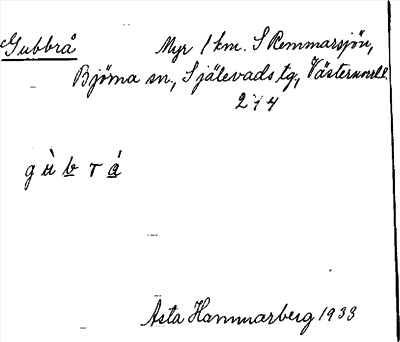 Gubbrå Myr 1 km. S Remmarsjön,
Björna sn., Själevads tg, Västernorrl.
214
g ù b r á
Asta Hammarberg 1933